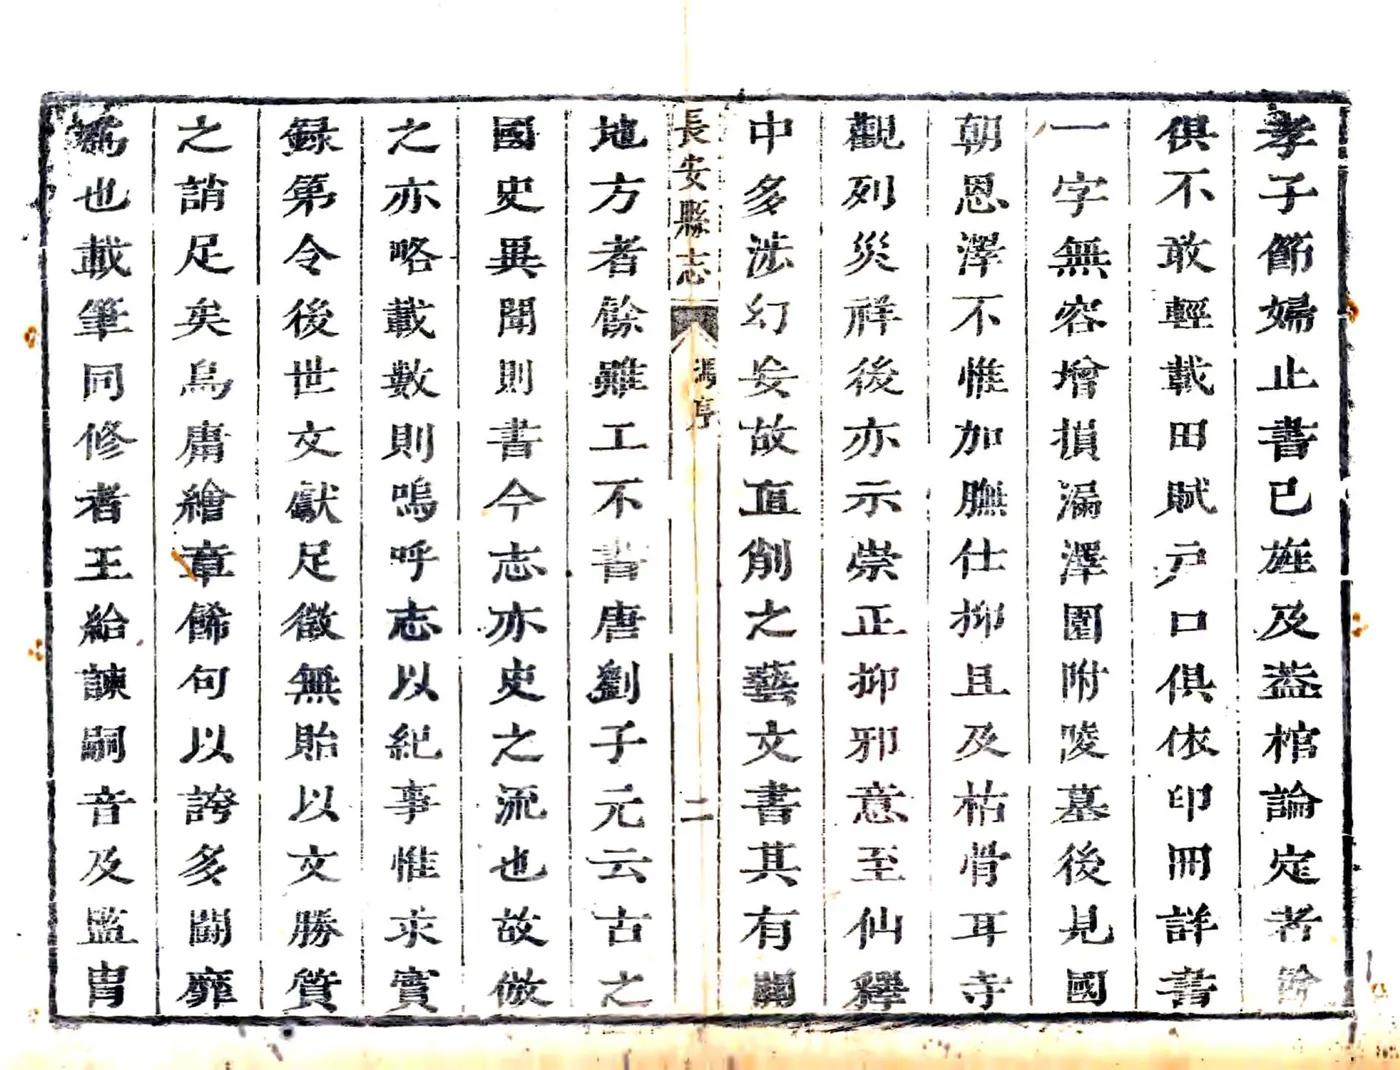 孝子節婦止書已旌及蓋棺論定者餘
俱不敢輕載田賦戸口俱依印冊詳書
一字無容增損漏澤園附陵墓後見國
朝恩澤不惟加膴仕抑且及枯骨耳寺
觀列災祥後亦示崇正抑邪意至仙釋
中多涉幻妄故直削之藝文書其有關
長安縣志 馮序 二
地方者餘雖工不書唐劉子元云古之
國史異聞則書今志亦史之流也故倣
之亦略載數則嗚呼志以紀事惟求實
録第令後世文獻足徵無貽以文勝質
之誚足矣烏庸繪章飾句以誇多鬭靡
為也載筆同修者王給諫嗣音及監胄